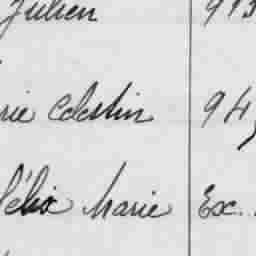 Julien 943
rie Celestin 94
Félix Marie Ex.